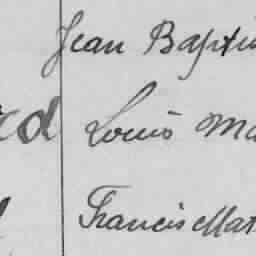 Jean Bapti
Louis Ma
Francis Mat